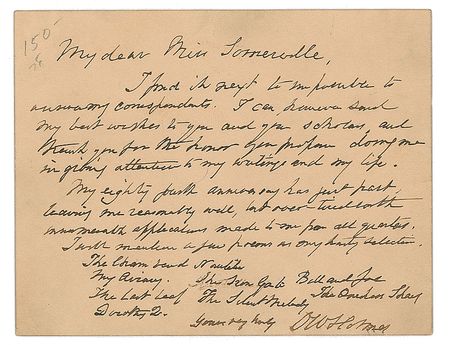 150
My dear Miss Somerville,
I find it next to impossible to
answer my correspondents. I can, however send
my best wishes to you and your scholars, and
thank you for the honor you propose doing me
in giving attention to my writings and my life.
My eighty fourth anniversary has just past,
leaving me reasonably well, but over tired with
innumerable applications made to me from all quarters.
I will mention a few poems as my hasty selection.
The Chambered Nautilus
My Aviary. The Iron Gate Bill and Joe
The Last Leaf The Silent Melody The One Hoss Shay
Dorothy Q.
Yours very truly O W Holmes